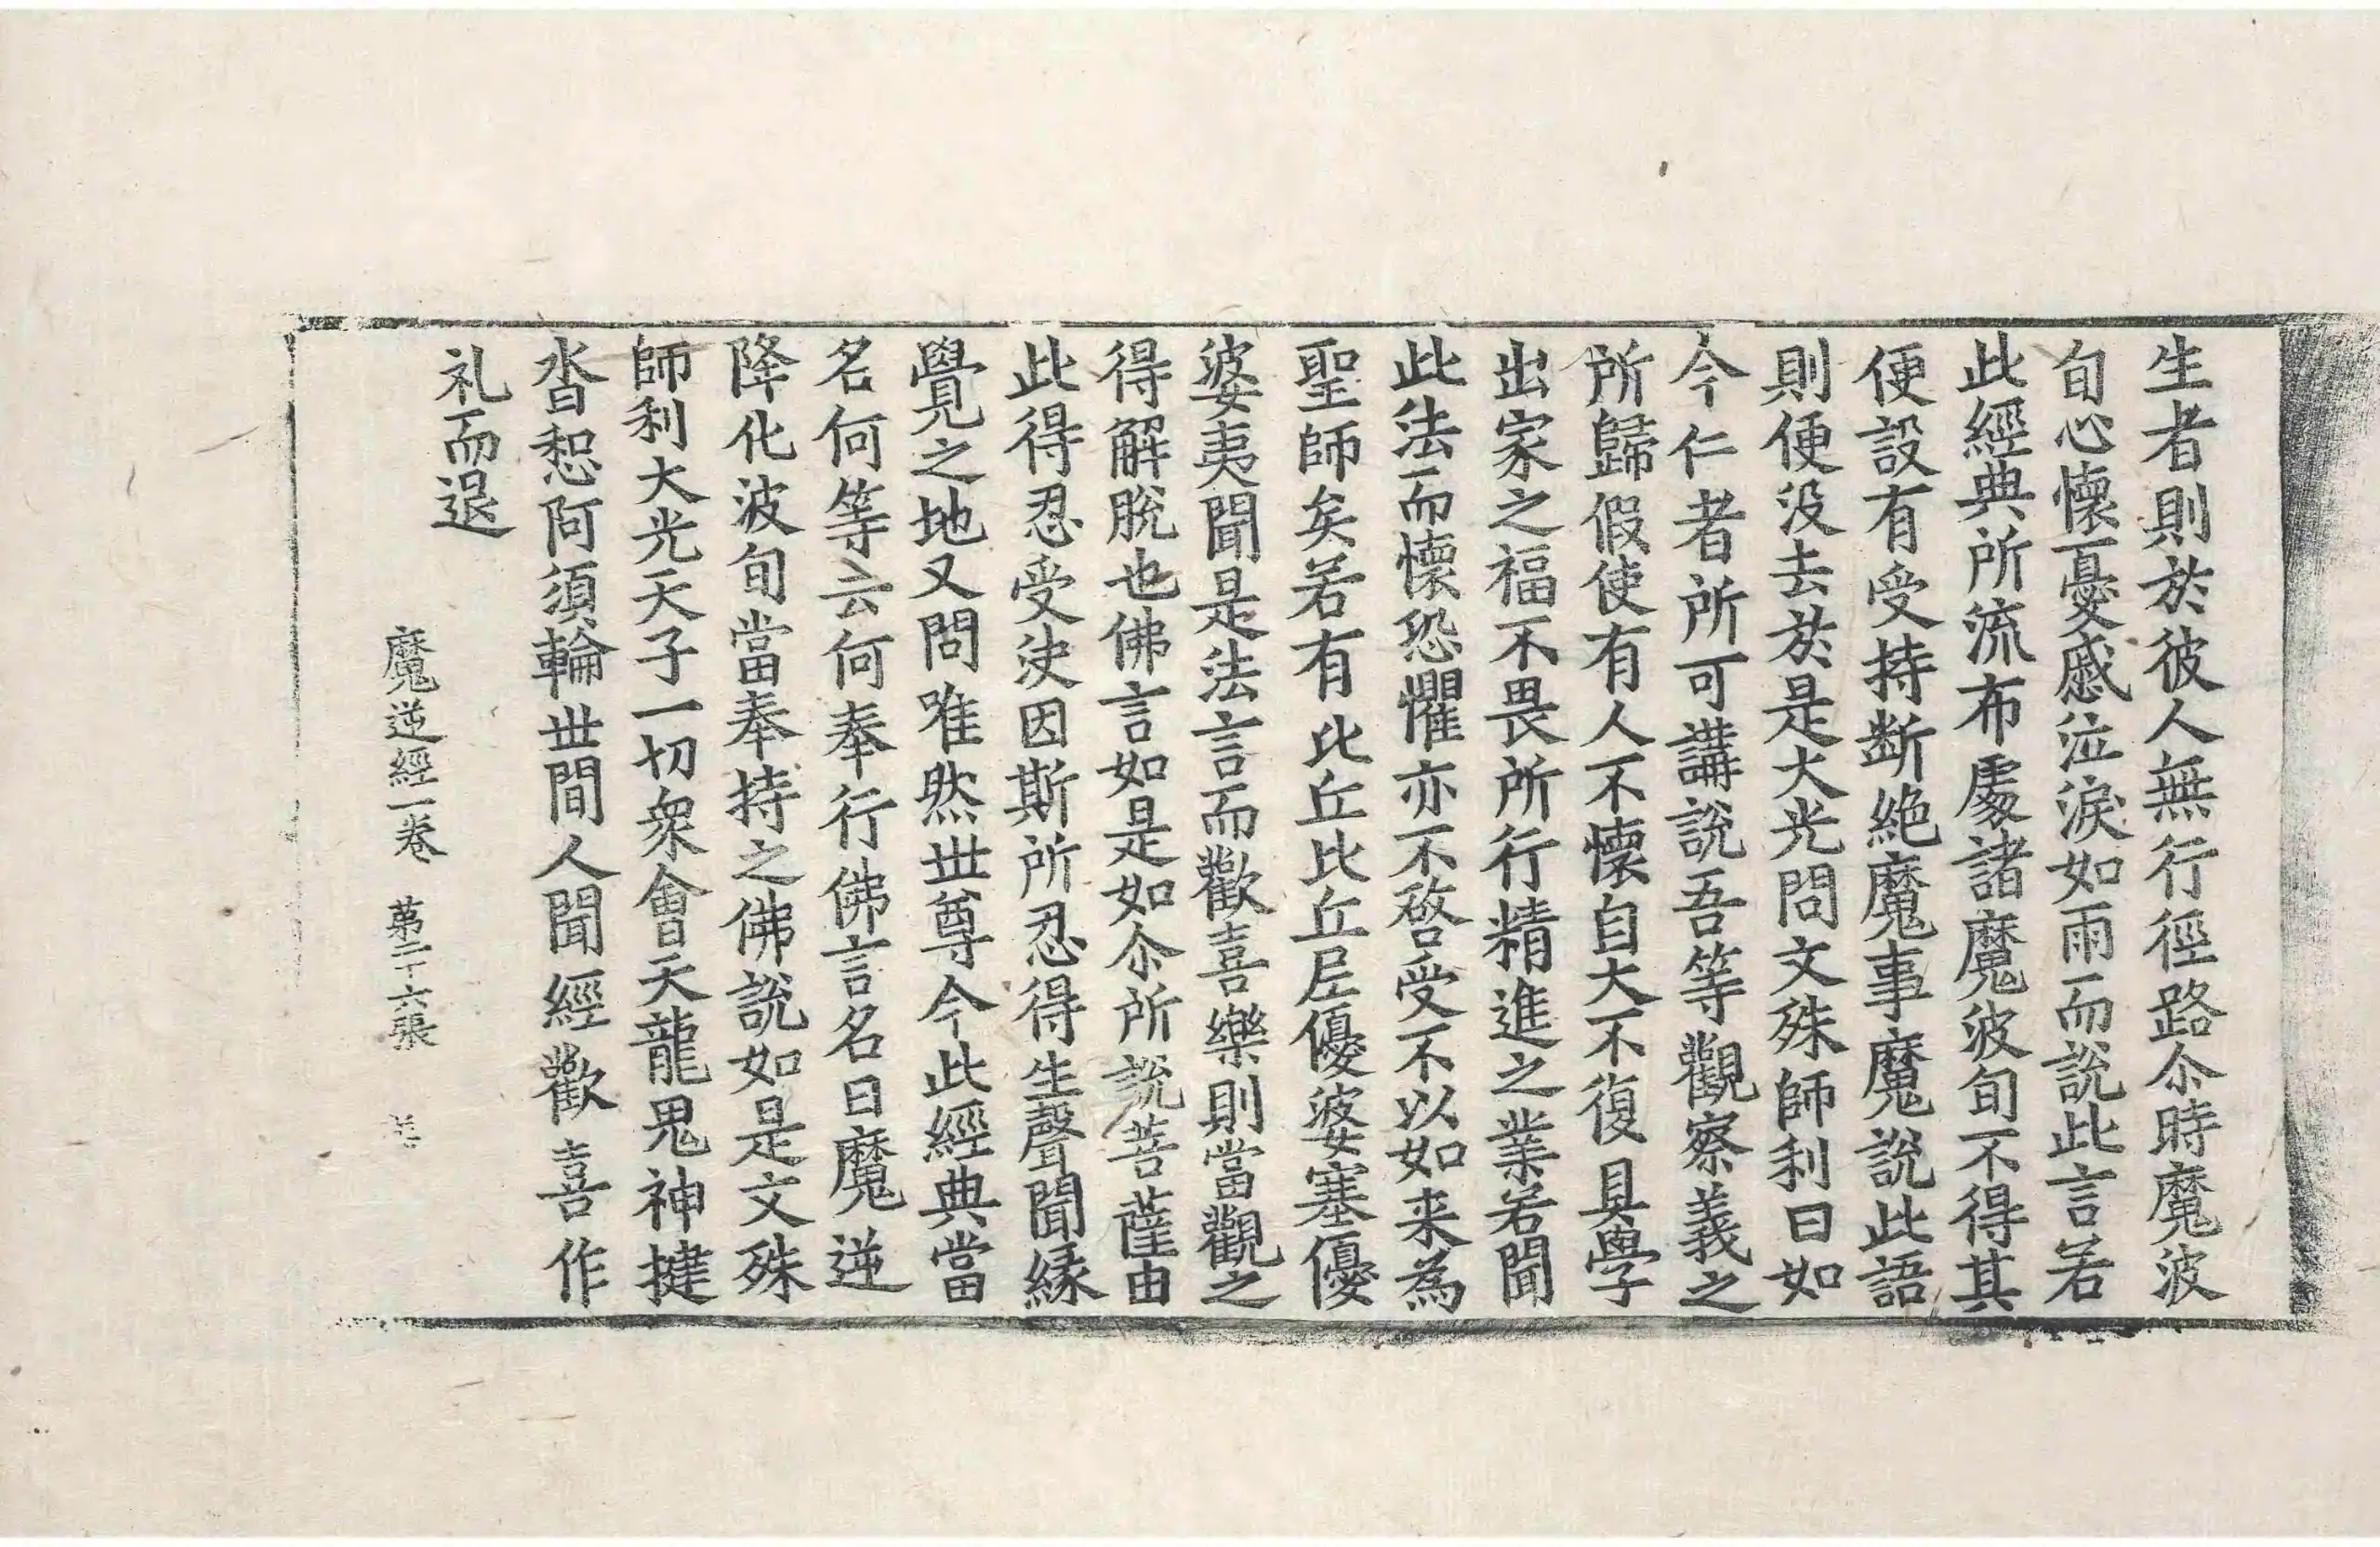 生者則於彼人無行徑路尒時魔波
旬心懷憂慼泣淚如雨而說此言若
此經典所流布處諸魔波旬不得其
便設有受持斷絶魔事魔說此語
則便没去於是大光問文殊師利曰如
今仁者所可講說吾等觀察義之
所歸假使有人不懷自大不復具學
出家之福不畏所行精進之業若聞
此法而懷恐懼亦不啓受不以如来為
聖師矣若有比丘比丘尼優婆塞優
婆夷聞是法言而歡喜樂則當觀之
得解脫也佛言如是如尒所說菩薩由
此得忍受決因斯所忍得生聲聞縁
覺之地又問唯然世尊今此經典當
名何等云何奉行佛言名曰魔逆
降化波旬當奉持之佛說如是文殊
師利大光天子一切衆會天龍鬼神揵
沓惒阿須輪世間人聞經歡喜作
礼而退
魔逆經一卷 第二十六張